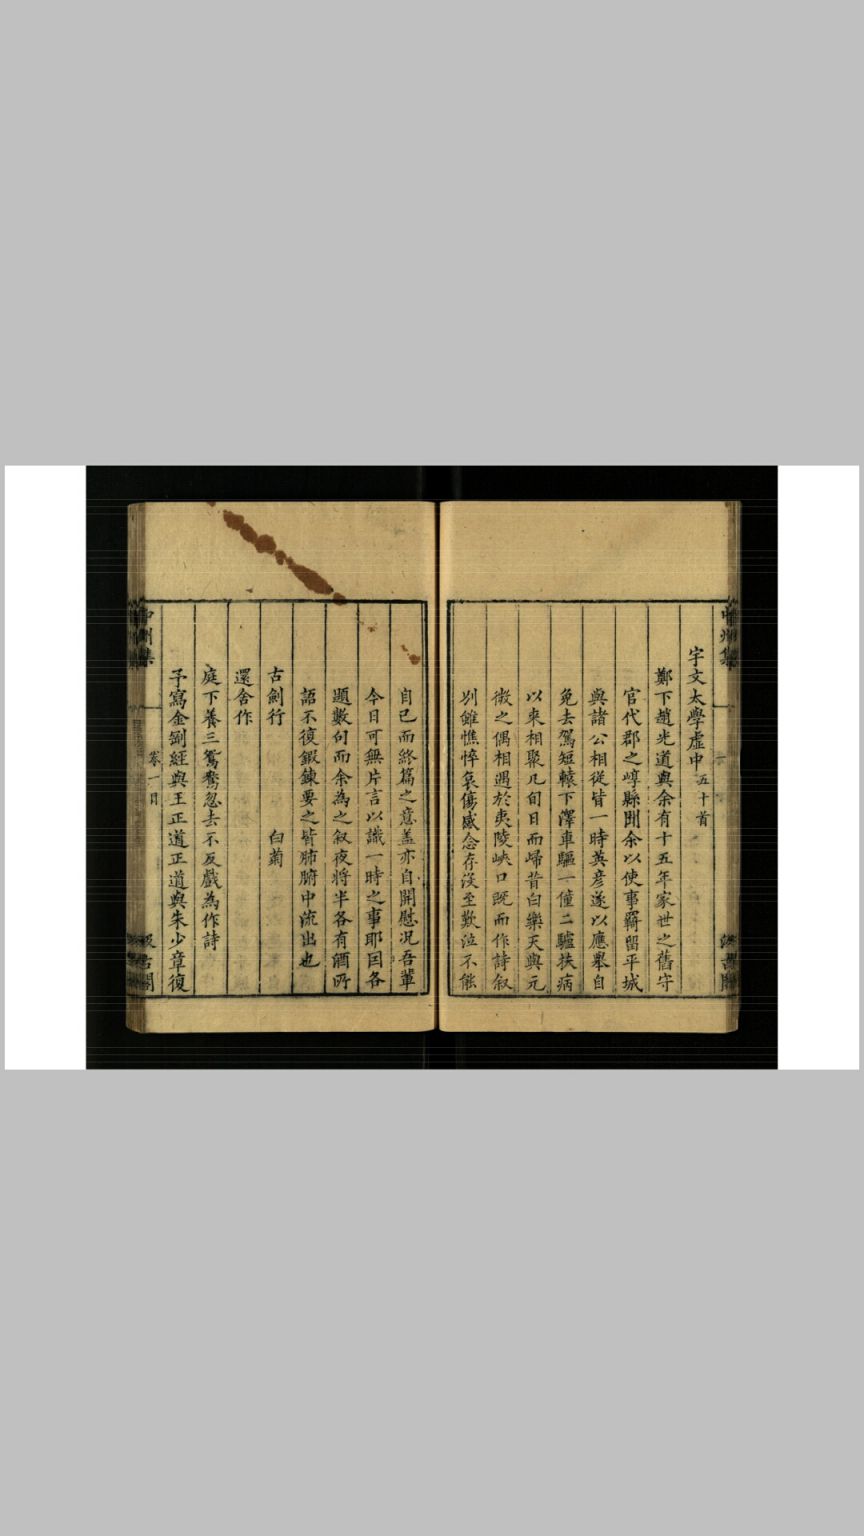 宇文太學虛中 五十首
鄭下趙光道與余有十五年家世之舊守
官代郡之崞縣聞余以使事羈留平城
與諸公相従皆一時英彦遂以應舉自
免去駕短轅下澤車驅一僮二驢扶病
以来相聚凡旬日而歸昔白樂天與元
微之偶相遇於夷陵峽口既而作詩叙
别雖憔悴哀傷感念存沒至歎泣不能
自己而終篇之意盖亦自開慰况吾輩
今日可無片言以識一時之事耶因各
題數句而余為之叙夜将半各有酒所
語不復鍛鍊要之皆肺腑中流出也
古劍行 白菊
還舍作
庭下養三鴛鴦忽去不反戲為作詩
予寫金剛經與王正道正道與朱少章復
中州集
卷一目
汲古閣